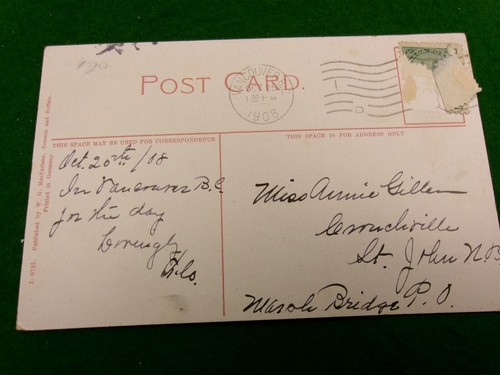 POST CARD.
VANCOUVER
1908
THIS SPACE MAY BE USED FOR CORRESPONDENCE
THIS SPACE IS FOR ADDRESS ONLY
Oct. 20th/08
In Vancouver B.C
for the day
Miss Annie Gillen
Crouchville
St. John N.B
Marsh Bridge P.O.
Published by W. G. MacFarlane, Toronto and Buffalo.
Printed in Germany